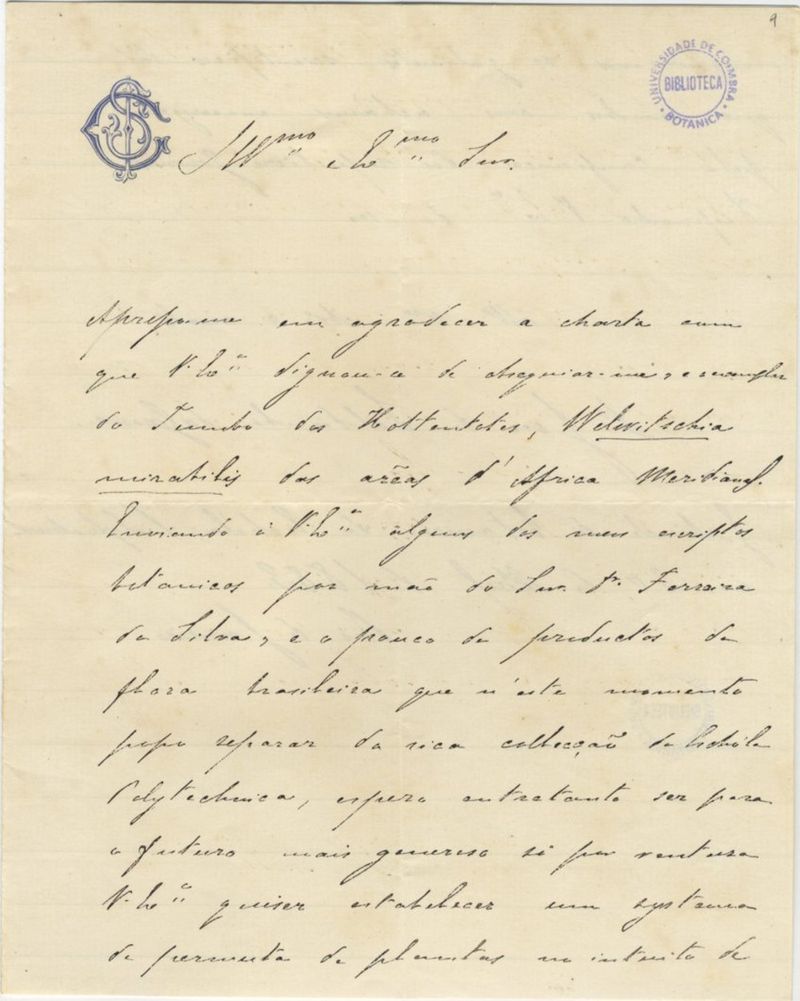 9
UNIVERSIDADE DE COIMBRA
BIBLIOTECA
BOTANICA
Illmo e Exmo Snr.
Apresso-me em agradecer a charta com
que V. Exa dignou-se de obsequiar-me, e o exemplar
do Tumbo dos Hottentotes, Welwitschia
mirabilis das arêas d'Africa Meridional.
Enviando á V. Exa alguns dos meus escriptos
botanicos por mão do Snr. Dr. Ferreira
da Silva, e o pouco de productos da
flora brasileira que n'este momento
posso separar da rica collecção da Eschola
Polytechnica, espero entretanto ser para
o futuro mais generoso si por ventura
V. Exa quiser estabelecer um systema
de permuta de plantas no intuito de